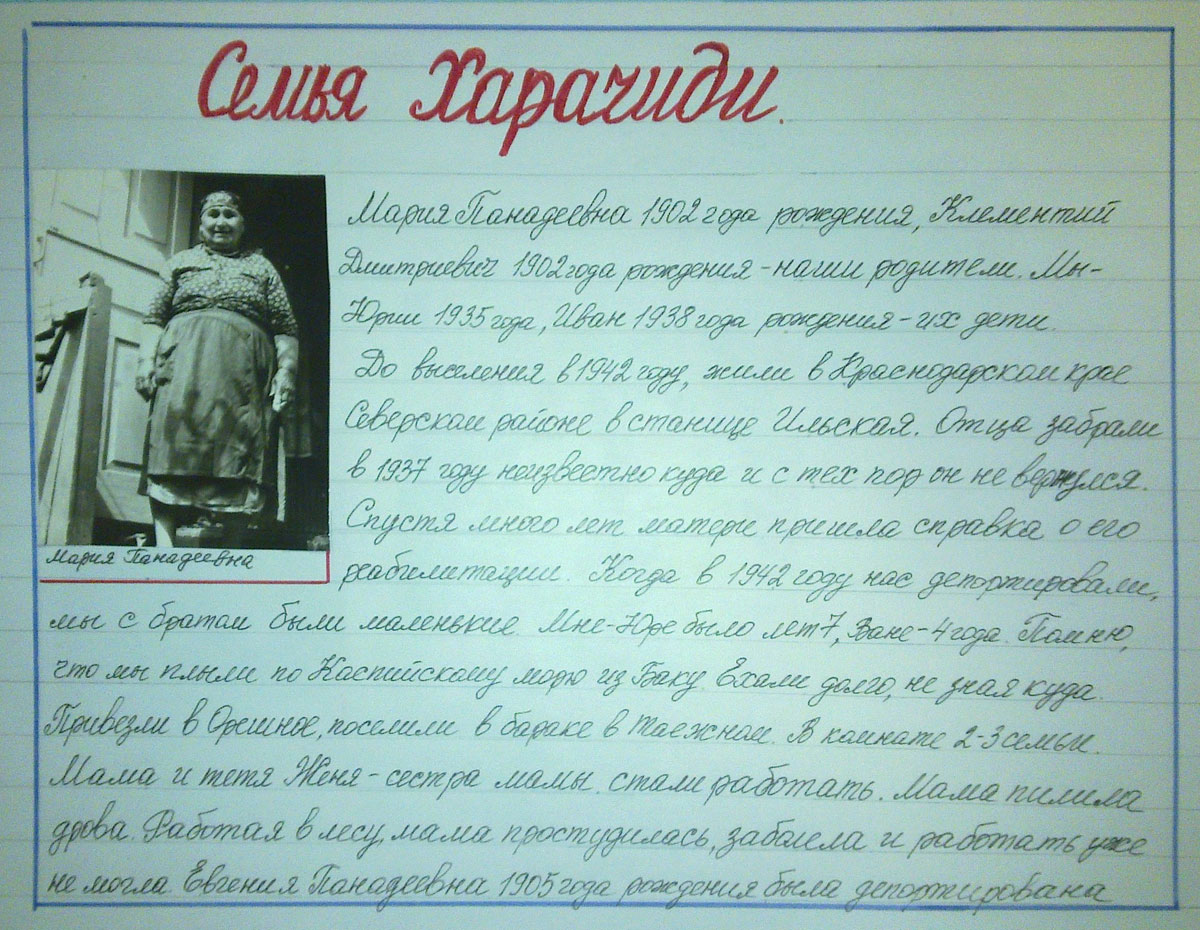 Семья Харачиди.
Мария Панадеевна 1902 года рождения, Клементий
Дмитриевич 1902 года рождения - наши родители. Мы-
Юрий 1935 года, Иван 1938 года рождения - их дети.
До выселения в 1942 году, жили в Краснодарском крае
Северском районе в станице Ильская. Отца забрали
в 1937 году неизвестно куда и с тех пор он не вернулся.
Спустя много лет матери пришла справка о его
реабилитации. Когда в 1942 году нас депортировали,
Мария Панадеевна
мы с братом были маленькие. Мне-Юре было лет 7, Ване-4 года. Помню,
что мы плыли по Каспийскому морю из Баку. Ехали долго, не зная куда.
Привезли в Орешное, поселили в бараке в Таежном. В комнате 2-3 семьи.
Мама и тетя Женя - сестра мамы стали работать. Мама пилила
дрова. Работая в лесу, мама простудилась, заболела и работать уже
не могла. Евгения Панадеевна 1905 года рождения была депортирована